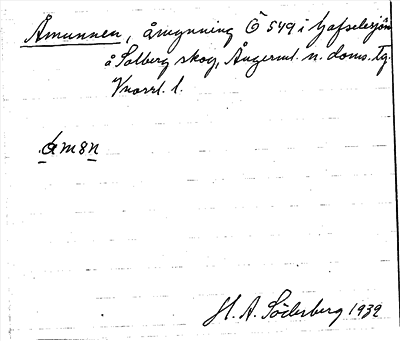 Åmunnen, åmynning Ö 549 i Gafselesjön
å Solberg skog, Ångerml. n. doms. Tg.
Vnorrl. l.
åm8n
H. A. Söderberg 1939